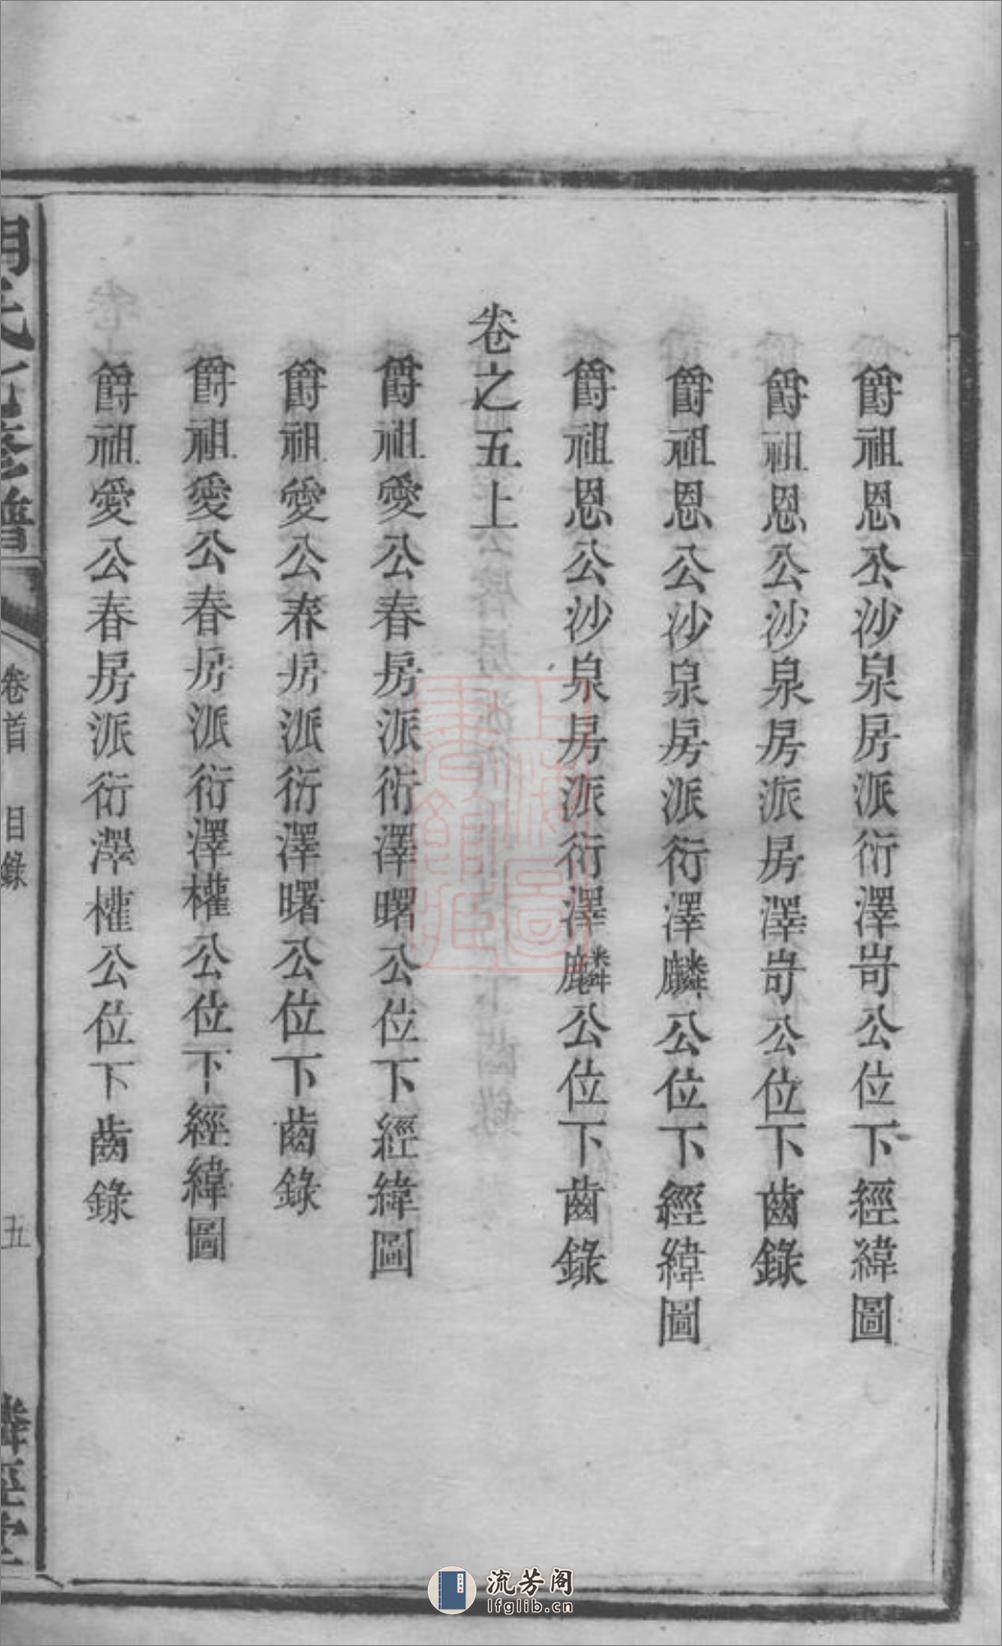 爵祖恩公沙泉房派衍澤岢公位下經緯圖
爵祖恩公沙泉房派房澤岢公位下齒錄
爵祖恩公沙泉房派衍澤麟公位下經緯圖
爵祖恩公沙泉房派衍澤麟公位下齒錄
卷之五上
爵祖愛公春房派衍澤曙公位下經緯圖
爵祖愛公春房派衍澤曙公位下齒錄
爵祖愛公春房派衍澤權公位下經緯圖
爵祖愛公春房派衍澤權公位下齒錄
卷首 目錄
五
上海圖書館藏
流芳阁
lfglib.com